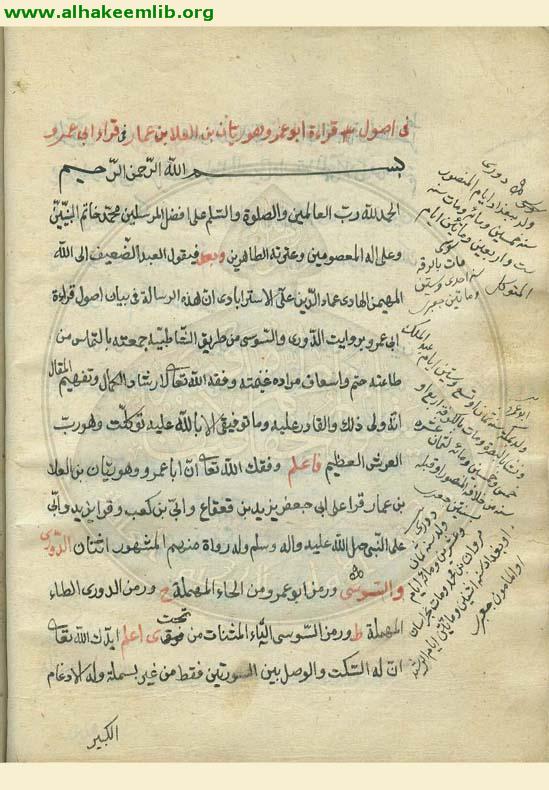 www.alhakeemlib.org
فى اصول قراءة ابو عمرو وهو ريان بن العلا بن عمار فى قراء ابى عمرو
بسم الله الرحمن الرحيم
الحمد لله رب العالمين والصلوة والسلم على افضل المرسلين محمد خاتم النبيين
وعلى اله المعصومين وعترته الطاهرين وبعد فيقول العبد الضعيف الى الله
المهيمن الهادى عماد الدين على الاسترابادى ان هذه الرسالة فى بيان اصول قراءة
ابى عمرو بروايت الدورى والسوسى من طريق الشاطبية جمعته بالتماس من
طاعته حتم واسعاف مراده غنيمته وفقه الله تعالى لارشاد الكمال وتفهيم المقال
انه ولى ذلك والقادر عليه وما توفيقى الا بالله عليه توكلت وهو رب
العرش العظيم فاعلم وفقك الله تعا ان ابا عمرو وهو ريان بن العلا
بن عمار قرا على ابى جعفر يزيد بن قعقاع وابى بن كعب وقرا يزيد وابى
على النبى صلى الله عليه واله وسلم وله رواة منهم المشهور اثنان الدورى
والسوسى ورمز ابو عمرو من الحاء المهملة ح ورمز الدورى الطاء
المهملة ط ورمز السوسى الياء المثنات من فوق تحت ى اعلم ايدك الله تعا
ان له السكت والوصل بين السورتين فقط من غير بسملة وله الادغام
الكبير
دورى
ولد ببغداد ايام المنصور
سنة خمسين ومائة ومات سنة
ست واربعين وماتين ايام
المتوكل
سوسى
مات بالرقة
سنة احدى وستين
وماتين جعبرى
ابو عمرو
ولد بمكة سنة ثمان او تسع وستين ايام عبد الملك
ومات بالكوفة اربع او
خمس وخمسين ومائة